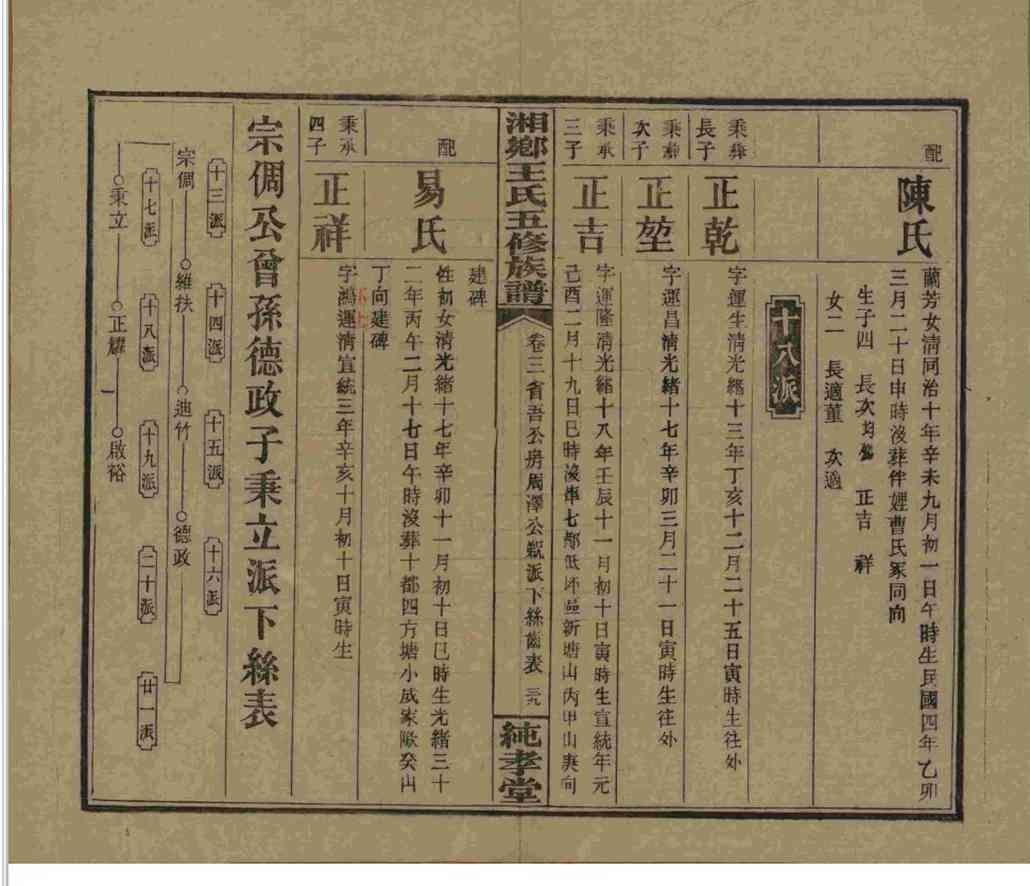 配
陳氏
蘭芳女清同治十年辛未九月初一日午時生民國四年乙卯
三月二十日申時沒葬伴娌曹氏冢同向
生子四 長次均 正吉 祥
女二 長適董 次適
十八派
秉彝
長子
正乾
字運生清光緒十三年丁亥十二月二十五日寅時生往外
秉彝
次子
正堃
字運昌清光緒十七年辛卯三月二十一日寅時生往外
秉承
三子
正吉
字運隆清光緒十八年壬辰十一月初十日寅時生宣統年元
己酉二月十九日巳時沒葬七都低坏區新塘山丙甲山庚向
湘鄉王氏五修族譜
卷三省吾公房周澤公親派下絲齒表 三九
純孝堂
建碑
配
易氏
姓初女清光緒十七年辛卯十一月初十日巳時生光緒三十
二年丙午二月十七日午時沒葬十都四方塘小成家歐癸山
丁向建碑
秉承
四子
正祥
字鴻運清宣統三年辛亥十月初十日寅時生
宗倜公曾孫德政子秉立派下絲表
十三派 十四派 十五派 十六派
宗倜 維扶 迪竹 德政
十七派 十八派 十九派 二十派 廿一派
秉立 正耀 啟裕